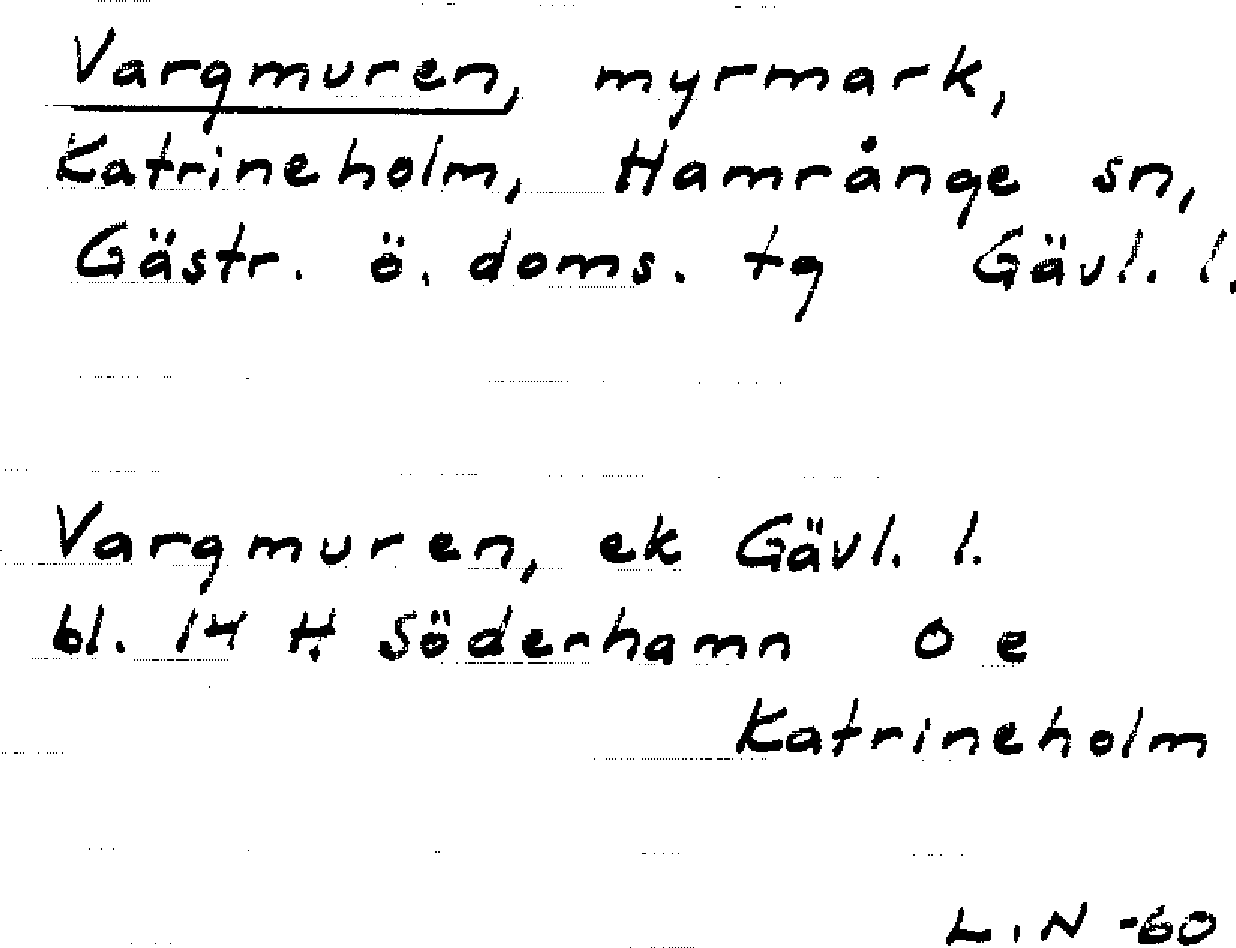 Vargmuren, myrmark,
Katrineholm, Hamrånge sn,
Gästr. ö. doms. tg Gävl. l.
Vargmuren, ek Gävl. l.
bl. 14 H Söderhamn 0 e
Katrineholm
L.N -60